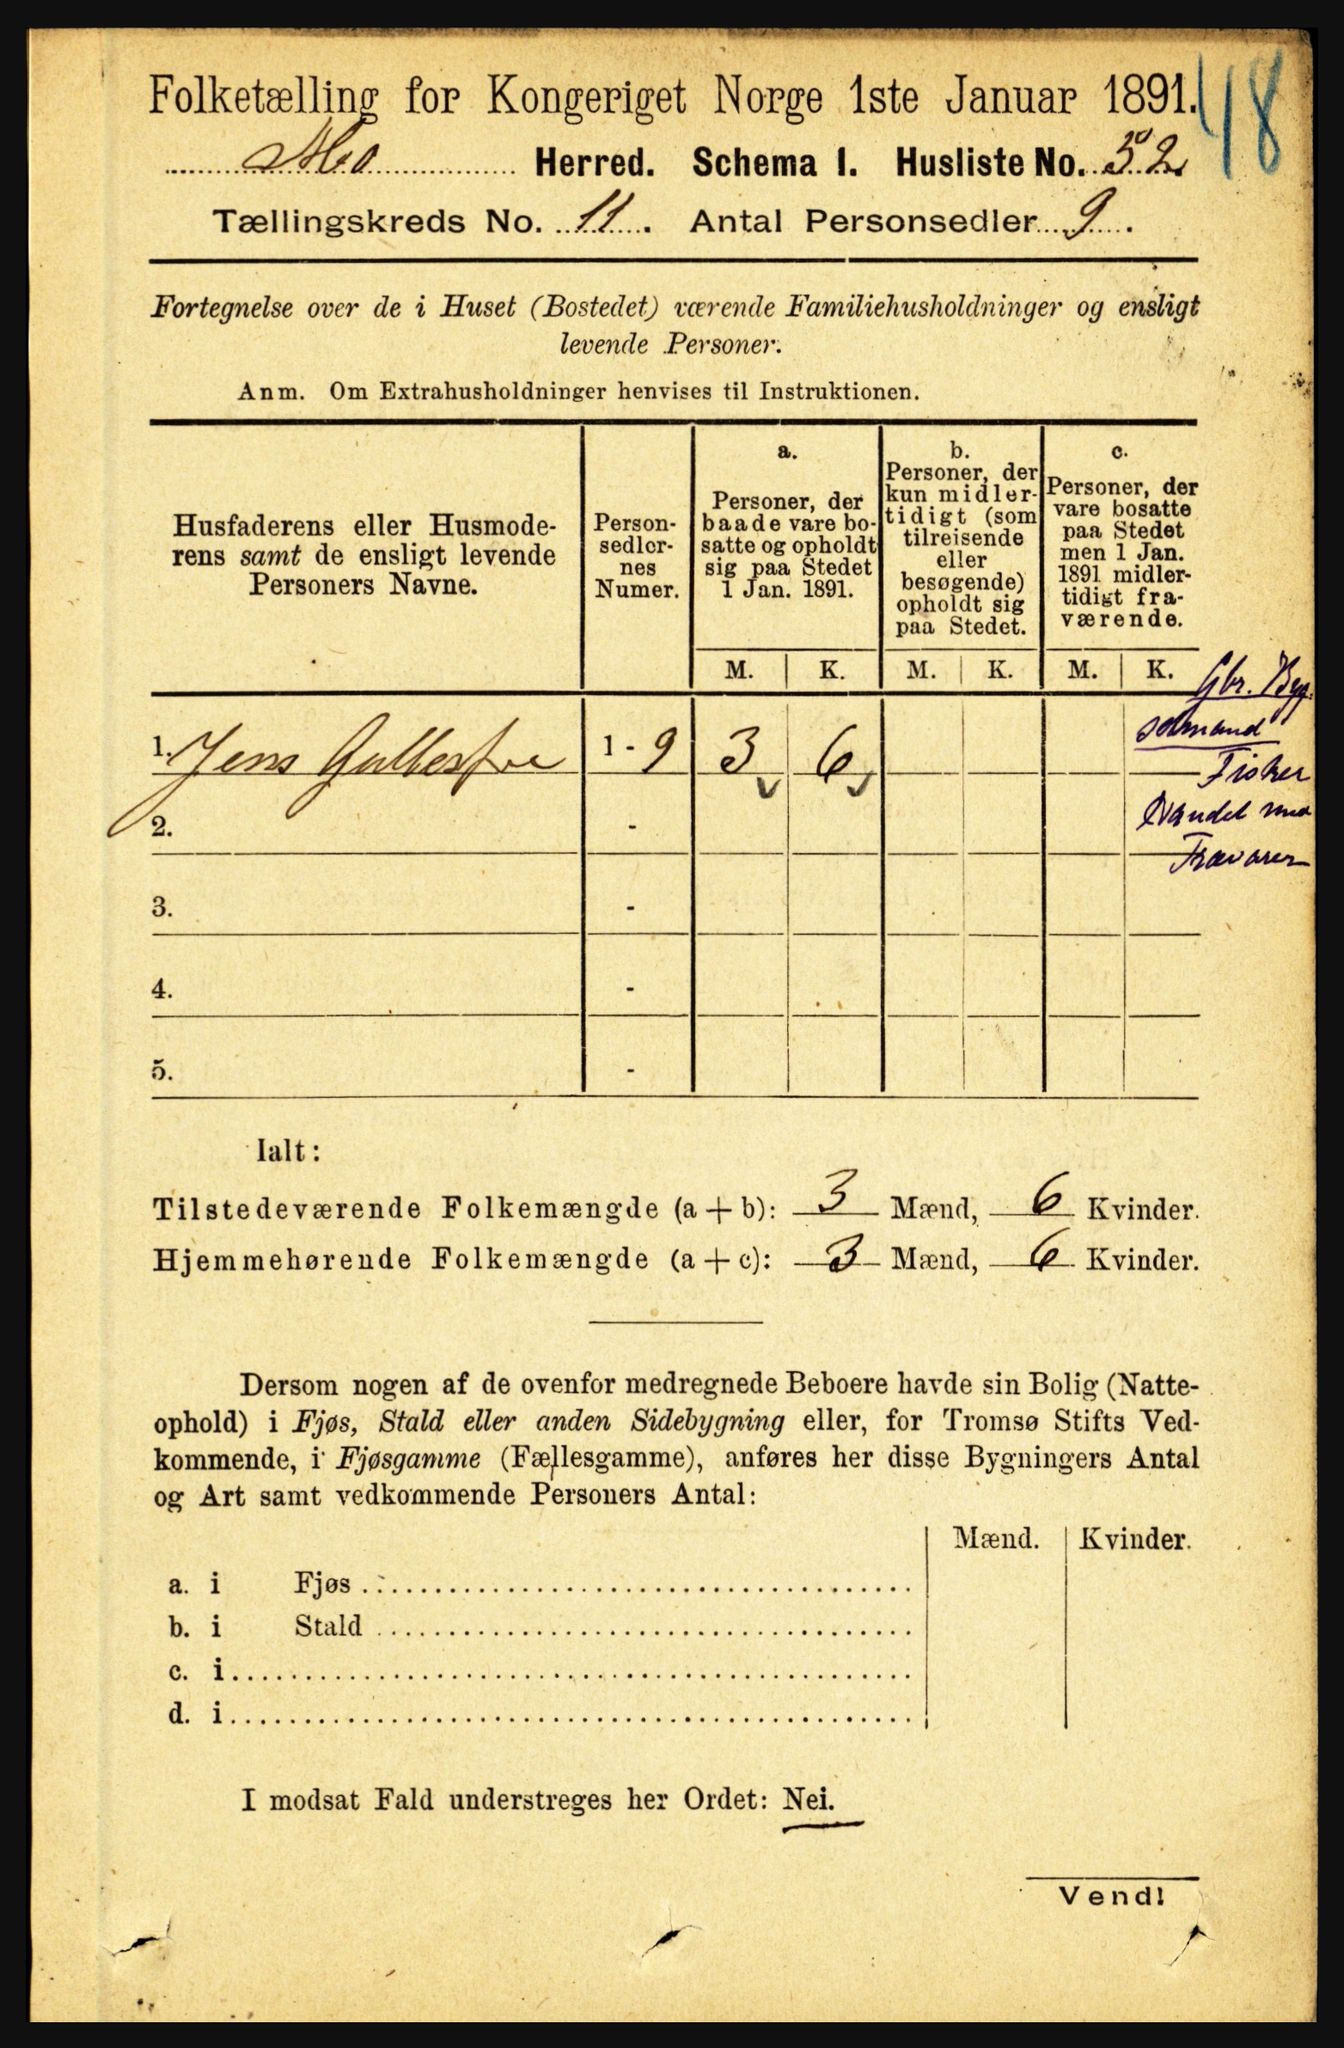 Folketælling for Kongeriget Norge 1ste Januar 1891.
48
Mo Herred. Schema I. Husliste No. 52
Tællingskreds No. 11. Antal Personsedler 9.
Fortegnelse over de i Huset (Bostedet) værende Familiehusholdninger og ensligt
levende Personer.
Anm. Om Extrahusholdninger henvises til Instruktionen.
Husfaderens eller Husmode-
rens samt de ensligt levende
Personers Navne.
Person-
sedler-
nes
Numer.
a.
Personer, der
baade vare bo-
satte og opholdt
sig paa Stedet
1 Jan. 1891.
b.
Personer, der
kun midler-
tidigt (som
tilreisende
eller
besøgende)
opholdt sig
paa Stedet.
c.
Personer, der
vare bosatte
paa Stedet
men 1 Jan.
1891 midler-
tidigt fra-
værende.
M. K. M. K. M. K.
Gbr.
1. Jens 1 - 9 3 6
Fisker
Handel med
Trævarer
2. -
3. -
4. -
5. -
Ialt:
Tilstedeværende Folkemængde (a + b): 3 Mænd, 6 Kvinder.
Hjemmehørende Folkemængde (a + c): 3 Mænd, 6 Kvinder.
Dersom nogen af de ovenfor medregnede Beboere havde sin Bolig (Natte-
ophold) i Fjøs, Stald eller anden Sidebygning eller, for Tromsø Stifts Ved-
kommende, i Fjøsgamme (Fællesgamme), anføres her disse Bygningers Antal
og Art samt vedkommende Personers Antal:
Mænd. Kvinder.
a. i Fjøs
b. i Stald
c. i
d. i
I modsat Fald understreges her Ordet: Nei.
Vend!